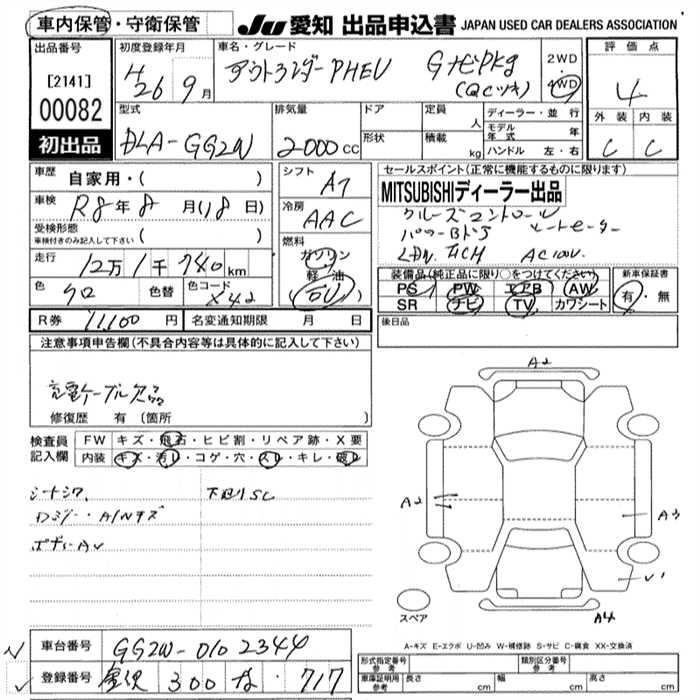 車内保管・守衛保管 JU 愛知 出品申込書 JAPAN USED CAR DEALERS ASSOCIATION
出品番号 [2141] 00082 初出品
初度登録年月 H26 9月
車名・グレード アウトランダーPHEV GナビPkg (QCツキ)
2WD 4WD
評価点 4
外装 内装
C C
型式 DLA-GG2W
排気量 2000cc
ドア 形状
定員 人
積載 kg
ディーラー・並行
モデル年式 年
ハンドル 左・右
車歴 自家用・( )
車検 R8年8月(18日)
受検形態 車検付きのみ記入して下さい ( )
走行 12万1千740km
色 クロ 色替 色コード X42
シフト AT
冷房 AAC
燃料 ガソリン・軽・油
R券 11,100円 名変通知期限 月 日
セールスポイント(正常に機能するものに限ります)
MITSUBISHIディーラー出品
クルーズコントロール
パワーBドア シートヒーター
AC100V
装備品(純正品に限り○をつけてください)
PS PW エアB AW
SR ナビ TV カワシート
新車保証書
有・無
後日品
注意事項申告欄(不具合内容等は具体的に記入して下さい)
充電ケーブル欠品
修復歴 有(箇所 )
検査員記入欄 FW キズ・飛石・ヒビ割・リペア跡・X要
内装 キズ・汚レ・コゲ・穴・スレ・キレ・破レ
シートシワ 下廻りSC
A2
A2
A3
A4
スペア
A-キズ E-エクボ U-凹み W-補修跡 S-サビ C-腐食 XX-交換済
車台番号 GG2W-0102344
登録番号 金沢 300 な 717
形式指定番号 参考
類別区分番号 参考
車庫証明用 参考 長さ cm 幅 cm 高さ cm